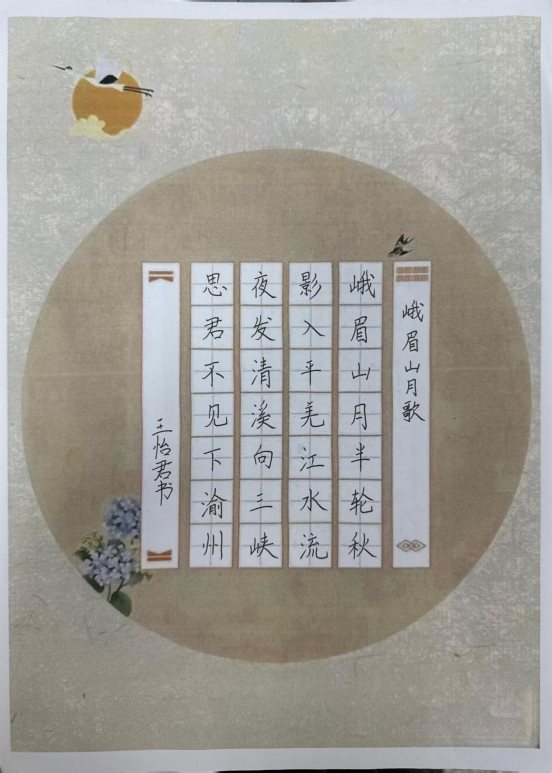 峨眉山月歌
峨眉山月半轮秋
影入平羌江水流
夜发清溪向三峡
思君不见下渝州
王怡君书